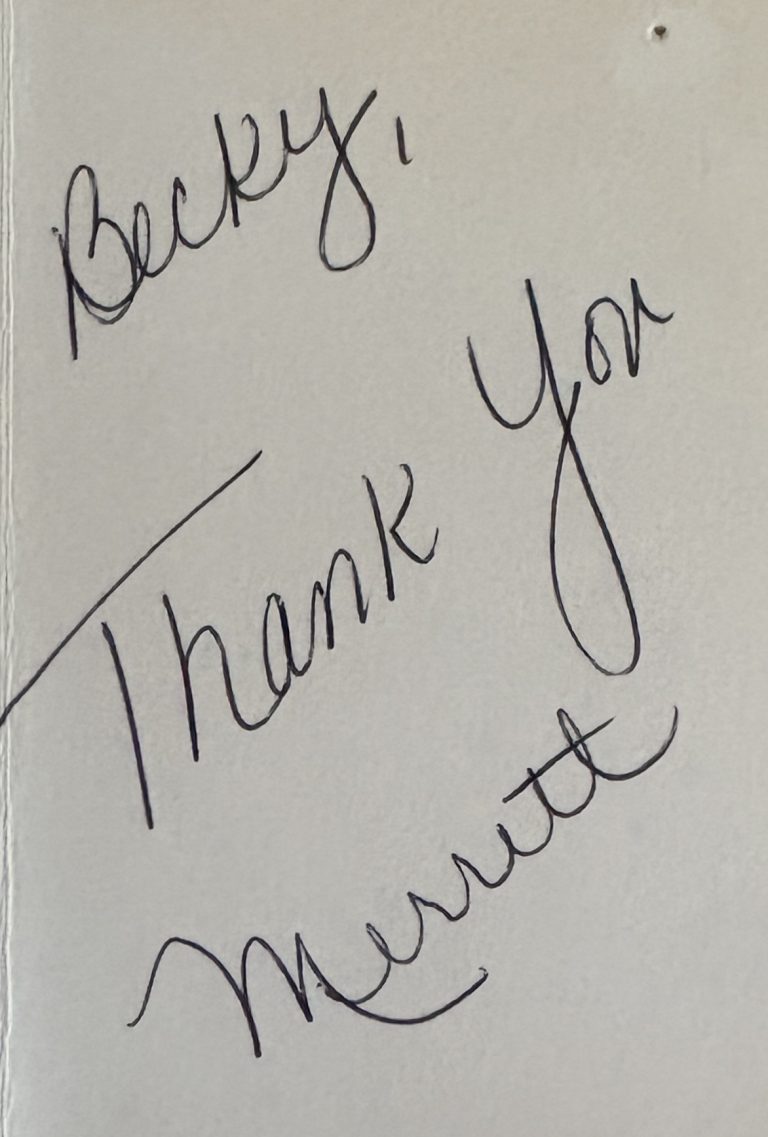 Becky,
Thank You
Merritt